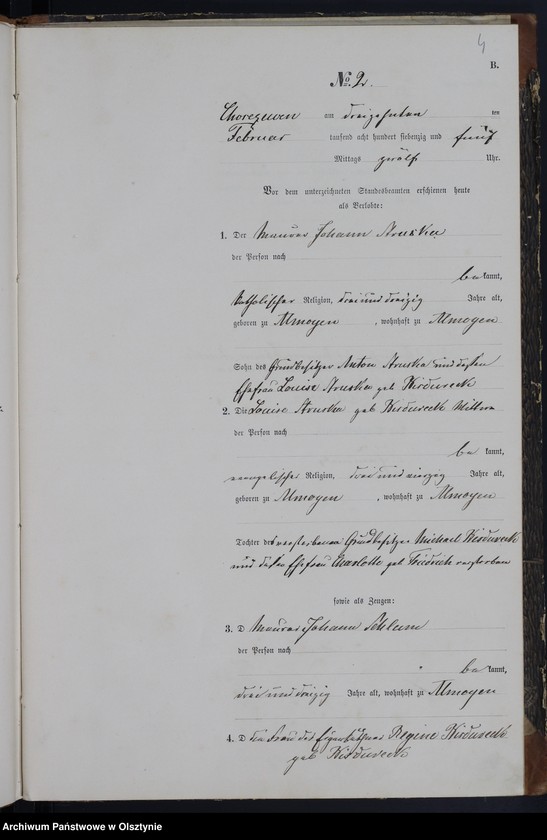 4
B.
No. 2.
Chorczewen am dreizehnten ten
Februar tausend acht hundert siebenzig und fünf
Mittags zwölf Uhr.
Vor dem unterzeichneten Standesbeamten erschienen heute
als Verlobte:
1. Der Maurer Johann Struska
der Person nach
bekannt,
katholischer Religion, drei und dreizig Jahre alt,
geboren zu Almoyen, wohnhaft zu Almoyen
Sohn des Grundbesitzer Anton Struska und dessen
Ehefrau Louise Struska geb
2. Die Louise Struska geb Wittwe
der Person nach
bekannt,
evangelischer Religion, drei und vierzig Jahre alt,
geboren zu Almoyen, wohnhaft zu Almoyen
Tochter des verstorbenen Grundbesitzer Michael
und dessen Ehefrau Charlotte geb Friedrich verstorben
sowie als Zeugen:
3. D Maurer Johann
der Person nach
bekannt,
drei und dreizig Jahre alt, wohnhaft zu Almoyen
4. D die Frau des Eigenkäthner Regine
geb
Archiwum Państwowe w Olsztynie